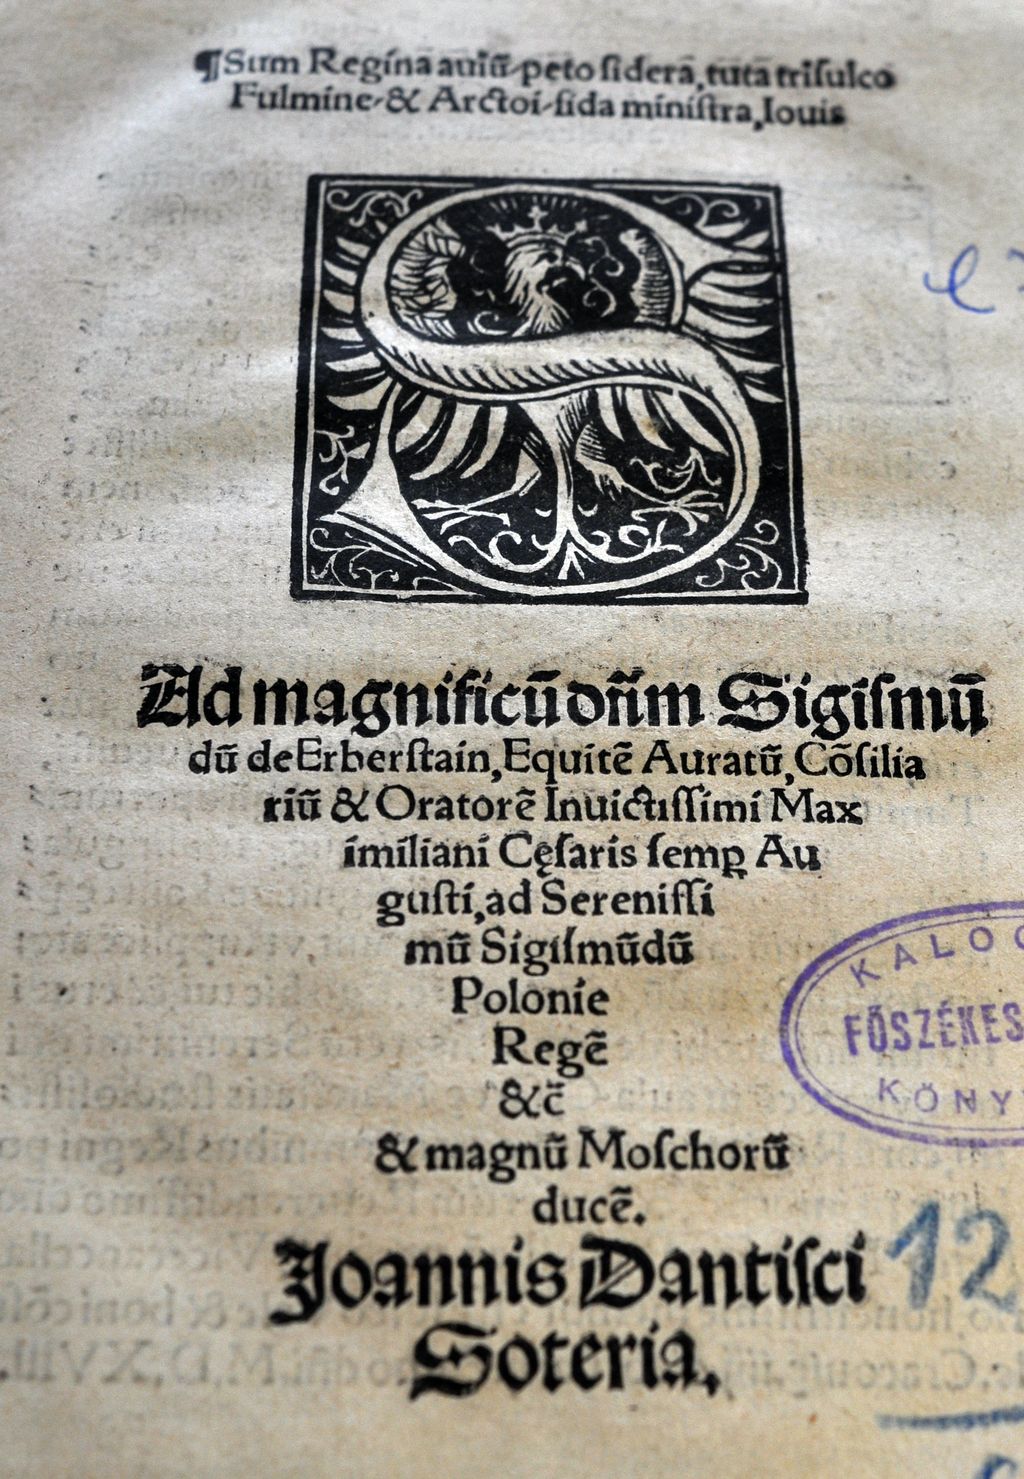 ¶Sum Regina auiũ, peto sidera, tuta trisulco
Fulmine, & Arctoi, fida ministra, Iouis
Ad magnificũ dñm Sigismũ
dũ de Erberstain, Equitẽ Auratũ, Cõsilia
riũ & Oratorẽ Inuictissimi Max
imiliani Cęsaris semꝑ Au
gusti, ad Serenissi
mũ Sigismũdũ
Polonie
Regẽ
&c̃
& magnũ Moschorũ
ducẽ.
Joannis Dantisci
Soteria.
KALOC
FŐSZÉKES
KÖNY
12